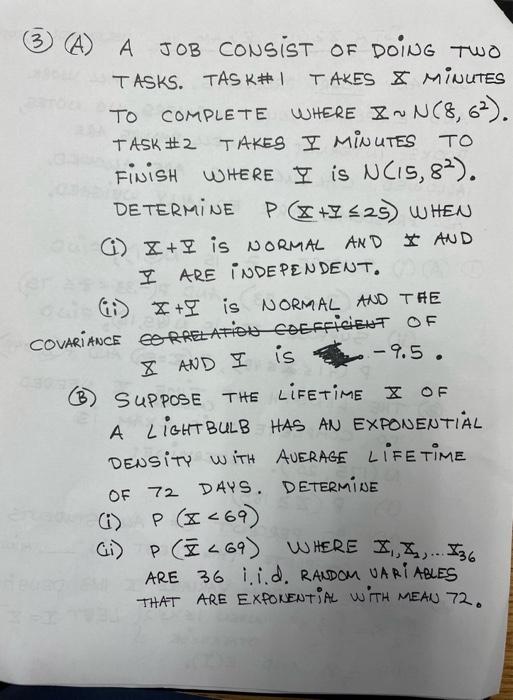 ③ (A) A JOB CONSIST OF DOING TWO
TASKS. TASK#1 TAKES X MINUTES
TO COMPLETE WHERE X ~ N(8, 6²).
TASK #2 TAKES Y MINUTES TO
FINISH WHERE Y is N(15, 8²).
DETERMINE P (X+Y ≤ 25) WHEN
(i) X+Y is NORMAL AND X AND
Y ARE INDEPENDENT.
(ii) X+Y is NORMAL AND THE
COVARIANCE CORRELATION COEFFICIENT OF
X AND Y is -9.5.
(B) SUPPOSE THE LIFETIME X OF
A LIGHTBULB HAS AN EXPONENTIAL
DENSITY WITH AVERAGE LIFETIME
OF 72 DAYS. DETERMINE
(i) P (X < 69)
(ii) P (X̄ < 69) WHERE X₁, X₂, ... X₃₆
ARE 36 i.i.d. RANDOM VARIABLES
THAT ARE EXPONENTIAL WITH MEAN 72.